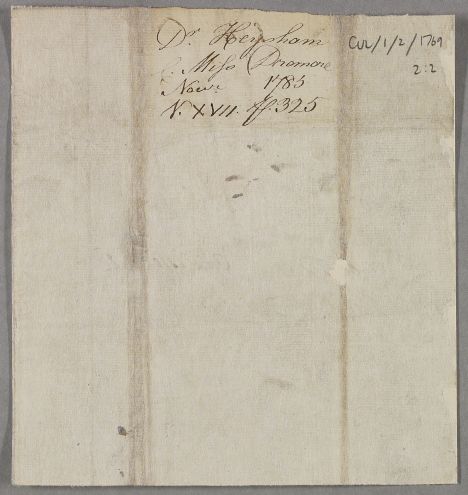 Dr. Heysham
Miss
Novr. 1785
N. XVII. ff. 325
CUL/1/2/1769
2:2